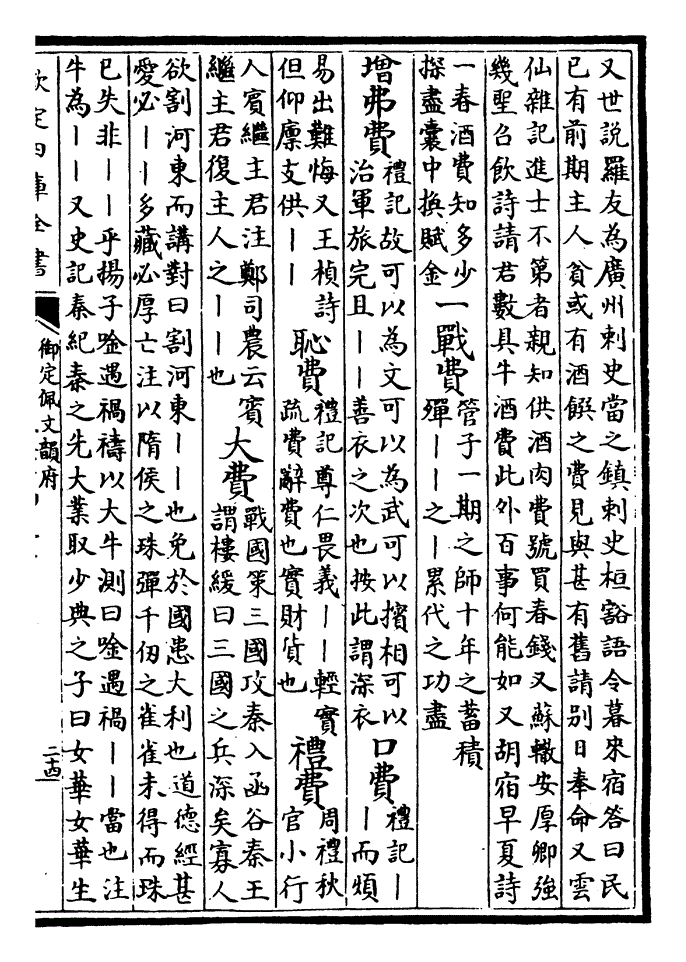 又世說羅友為廣州刺史當之鎮刺史桓豁語令暮來宿答曰民
已有前期主人貧或有酒饌之費見與甚有舊請別日奉命又雲
仙雜記進士不第者親知供酒肉費號買春錢又蘇轍安厚卿強
幾聖召飲詩請君數具牛酒費此外百事何能如又胡宿早夏詩
一春酒費知多少
探盡囊中換賦金
一戰費
管子一期之師十年之蓄積
殫丨丨之丨累代之功盡
增弗費
禮記故可以為文可以為武可以擯相可以
治軍旅完且丨丨善衣之次也按此謂深衣
口費
禮記丨
丨而煩
易出難悔又王楨詩
但仰廪支供丨丨
恥費
禮記尊仁畏義丨丨輕實
疏費辭費也實財貨也
禮費
周禮秋
官小行
人賓繼主君注鄭司農云賓
繼主君復主人之丨丨也
大費
戰國策三國攻秦入函谷秦王
謂樓緩曰三國之兵深矣寡人
欲割河東而講對曰割河東丨丨也免於國患大利也道德經甚
愛必丨丨多藏必厚亡注以隋侯之珠彈千仞之雀雀未得而珠
已失非丨丨乎揚子唫遇禍禱以大牛測曰唫遇禍丨丨當也注
牛為丨丨又史記秦紀秦之先大業取少典之子曰女華女華生
欽定四庫全書
御定佩文韻府
二十四